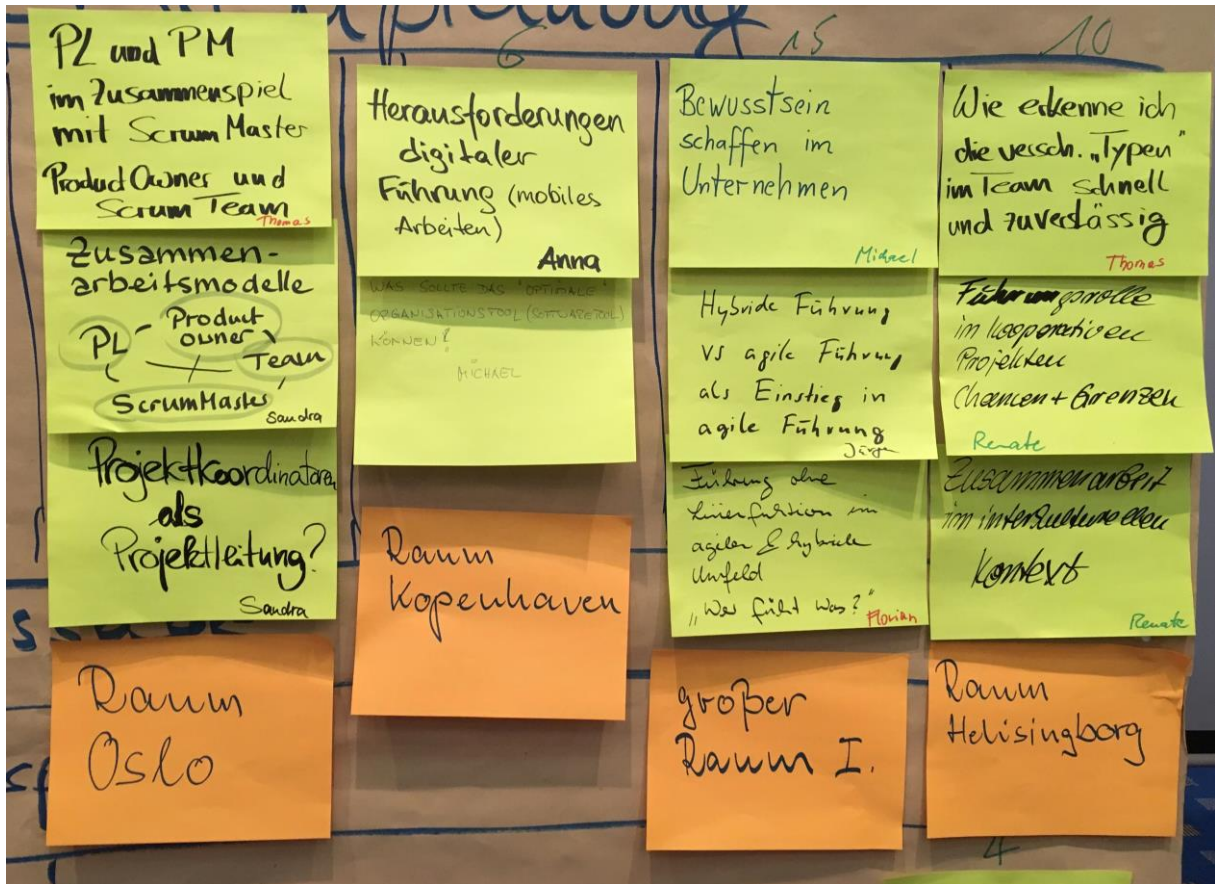 6
15
10
PL und PM
im Zusammenspiel
mit Scrum Master
Product Owner und
Scrum Team
Thomas
Zusammen-
arbeitsmodelle
PL
Product
owner
Team
ScrumMaster
Sandra
Projektkoordinatoren
als
Projektleitung?
Sandra
Raum
Oslo
Herausforderungen
digitaler
Führung (mobiles
Arbeiten)
Anna
WAS SOLLTE DAS "OPTIMALE"
ORGANISATIONSTOOL (SOFTWARETOOL)
KÖNNEN?
MICHAEL
Raum
Kopenhaven
Bewusstsein
schaffen im
Unternehmen
Michael
Hybride Führung
vs agile Führung
als Einstieg in
agile Führung
Jürgen
Führung ohne
Linienfunktion im
agilen & hybriden
Umfeld
"Wer führt was?"
Florian
großer
Raum I.
Wie erkenne ich
die versch. „Typen"
im Team schnell
und zuverlässig
Thomas
Führungsrolle
im kooperativen
Projekten
Chancen + Grenzen
Renate
Zusammenarbeit
im interkulturellen
Kontext
Renate
Raum
Helisingborg
4